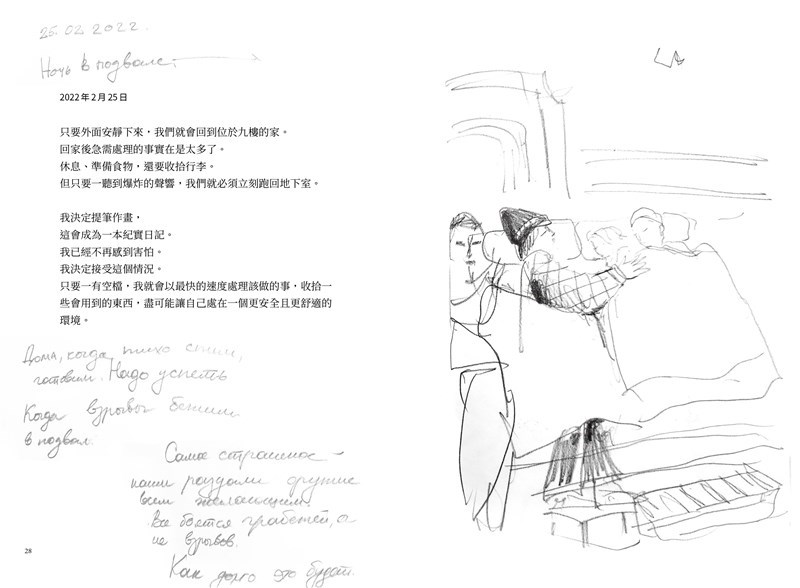 25.02 2022.
Ночь в подвале.
2022 年 2 月 25 日
只要外面安靜下來，我們就會回到位於九樓的家。
回家後急需處理的事實在是太多了。
休息、準備食物，還要收拾行李。
但只要一聽到爆炸的聲響，我們就必須立刻跑回地下室。
我決定提筆作畫，
這會成為一本紀實日記。
我已經不再感到害怕。
我決定接受這個情況。
只要一有空檔，我就會以最快的速度處理該做的事，收拾一
些會用到的東西，盡可能讓自己處在一個更安全且更舒適的
環境。
Дома, когда тихо спим,
готовим. Надо успеть
Когда взрывы бежим
в подвал.
Самое страшное –
наши раздали оружие
всем желающим.
Все боятся грабежей, а
не взрывов.
Как долго это будет.
28